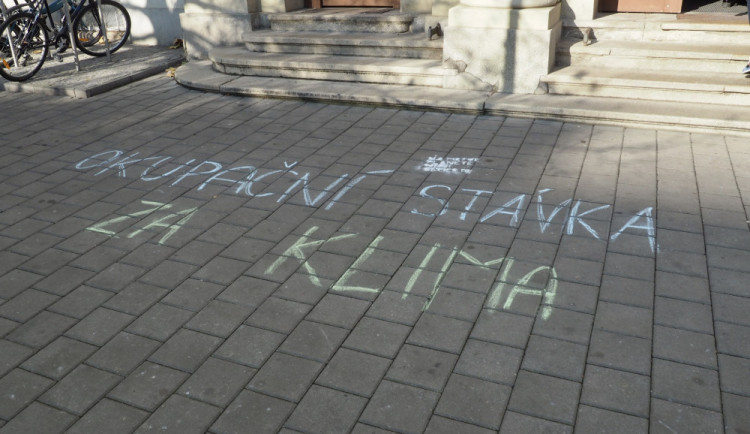 OKUPAČNÍ STÁVKA
ZA KLIMA